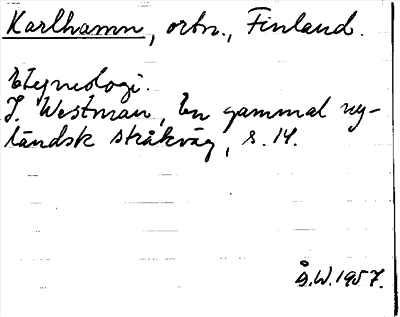 Karlhamn, ortn., Finland.
Etymologi.
J. Westman, En gammal ny-
ländsk stråkväg, s. 14.
Å.W. 1957.